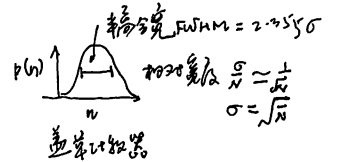 半高全宽 FWHM = 2.355σ
p(n)
相对宽度 σ/N ≈ 1/√N
σ = √N
n
盖革计数器